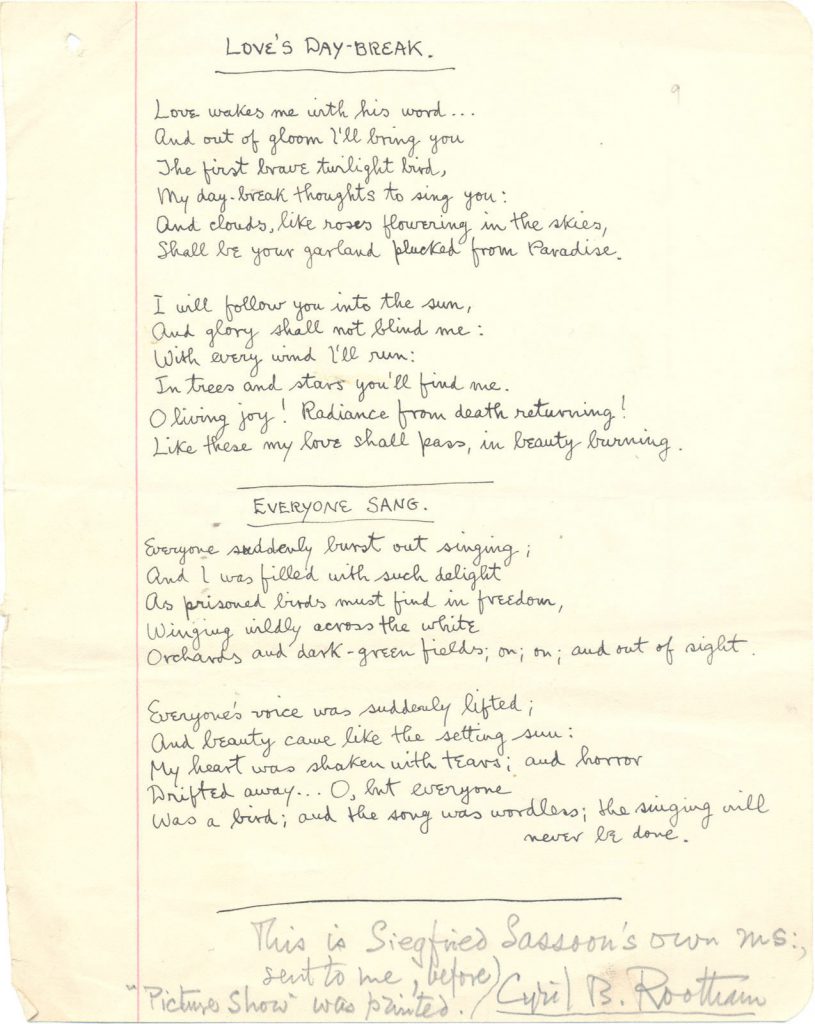 LOVE'S DAY-BREAK.
9
Love wakes me with his word...
And out of gloom I'll bring you
The first brave twilight bird,
My day-break thoughts to sing you:
And clouds, like roses flowering in the skies,
Shall be your garland plucked from Paradise.
I will follow you into the sun,
And glory shall not blind me:
With every wind I'll run:
In trees and stars you'll find me.
O living joy! Radiance from death returning!
Like these my love shall pass, in beauty burning.
EVERYONE SANG.
Everyone suddenly burst out singing;
And I was filled with such delight
As prisoned birds must find in freedom,
Winging wildly across the white
Orchards and dark-green fields; on; on; and out of sight.
Everyone's voice was suddenly lifted;
And beauty came like the setting sun:
My heart was shaken with tears; and horror
Drifted away... O, but everyone
Was a bird; and the song was wordless; the singing will
never be done.
This is Siegfried Sassoon's own ms:,
sent to me, before
"Picture Show" was printed. / Cyril B. Rootham